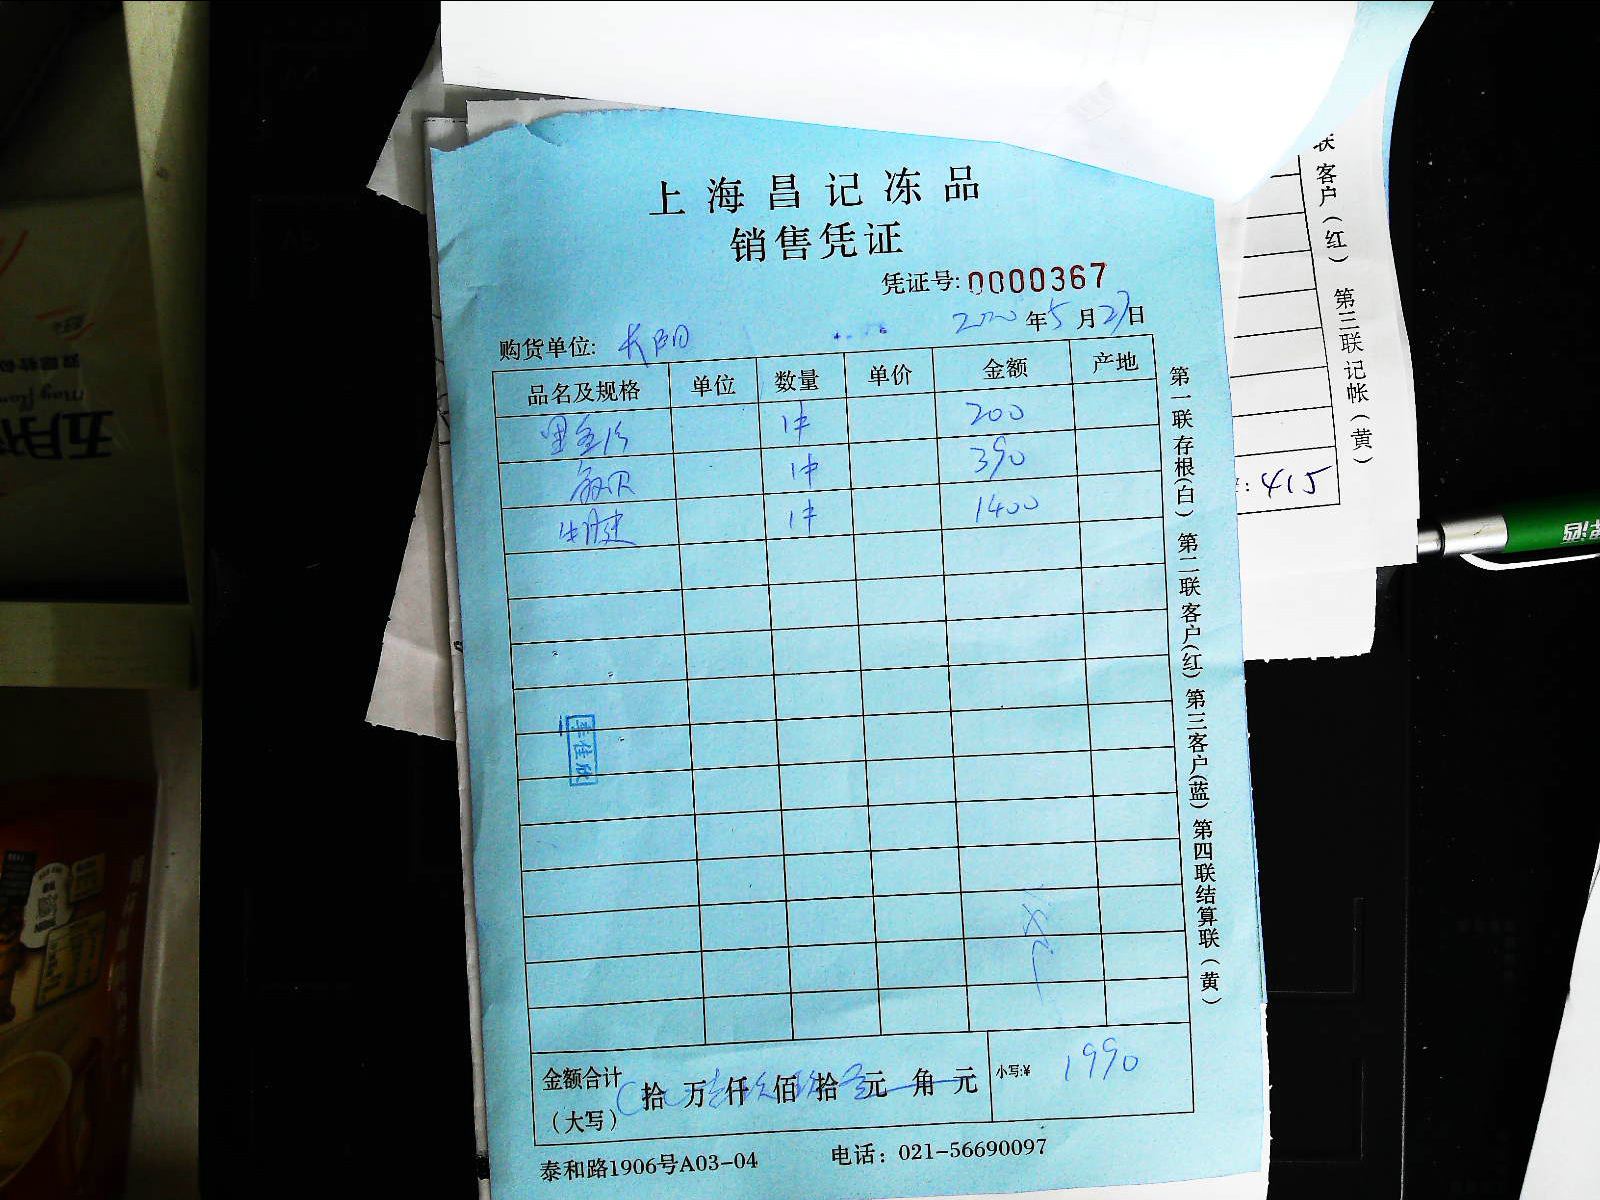 上海昌记冻品
销售凭证
凭证号: 0000367
2020年5月27日
购货单位: 长阳
品名及规格 单位 数量 单价 金额 产地
1件 200
1件 390
1件 1400
金额合计 拾 万壹仟玖佰玖拾零元 角 元 小写:¥ 1990
(大写)
泰和路1906号A03-04 电话: 021-56690097
第一联存根(白) 第二联客户(红) 第三客户(蓝) 第四联结算联(黄)
李佳欣
联客户(红) 第三联记帐(黄)
: 415
五月